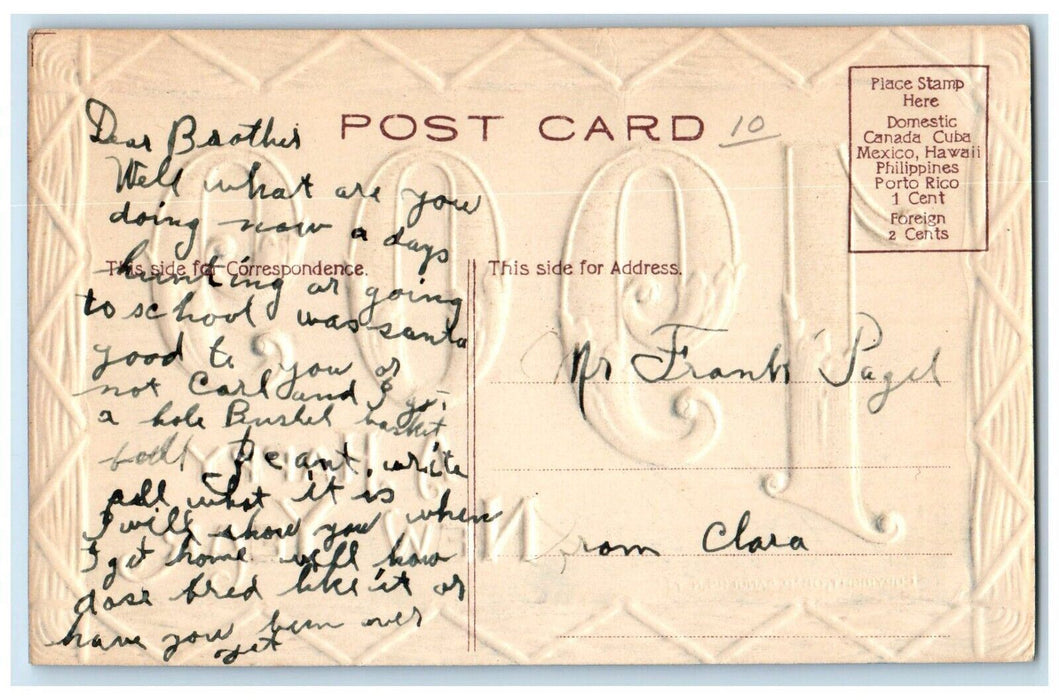 POST CARD 10
Place Stamp
Here
Domestic
Canada Cuba
Mexico, Hawaii
Philippines
Porto Rico
1 Cent
Foreign
2 Cents
Dear Brother
Well what are you
doing now a days
This side for Correspondence.
hunting or going
to school was santa
good to you or
not Carl and I got
a hole Bushel baskit
full I cant write
all what it is
I will show you when
I get home well how
dose fred like it or
have you bem over
yet
This side for Address.
Mr Frank Pagel
From Clara
1909
A Happy
New Year